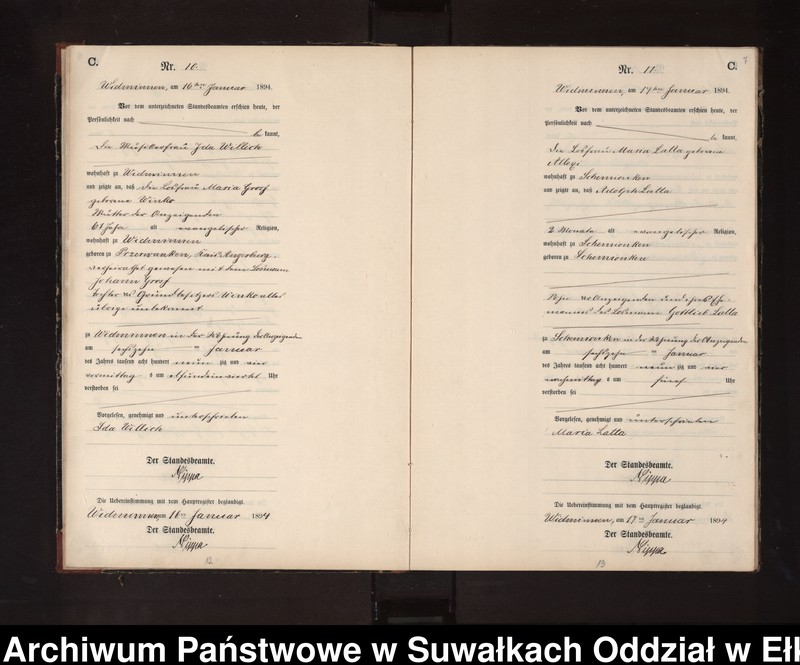 C.
Nr. 10.
Widminnen, am 16ten Januar 1894.
Vor dem unterzeichneten Standesbeamten erschien heute, der
Persönlichkeit nach
be kannt,
die Ida Willech
wohnhaft zu Widminnen
und zeigte an, daß die Losfrau Maria Gross
geborene Wenko
Mutter der Anzeigenden
61 Jahr alt evangelischer Religion,
wohnhaft zu Widminnen
geboren zu Przerwanken, Kreis Angerburg,
verheirathet gewesen mit dem Losmann
Johann Gross
Tochter des Grundbesitzers Wenko alles
übrige unbekannt
zu Widminnen in der Wohnung der Anzeigenden
am sechszehn ten Januar
des Jahres tausend acht hundert neun zig und vier
vormittag s um elf und ein viertel Uhr
verstorben sei
Vorgelesen, genehmigt und unterschrieben
Ida Willech
Der Standesbeamte.
Nippa
Die Uebereinstimmung mit dem Hauptregister beglaubigt.
Widminnen, am 16ten Januar 1894
Der Standesbeamte.
Nippa
12
C. 7
Nr. 11.
Widminnen, am 17ten Januar 1894.
Vor dem unterzeichneten Standesbeamten erschien heute, der
Persönlichkeit nach
be kannt,
die Losfrau Maria Latta geborene
wohnhaft zu Schemionken
und zeigte an, daß Adolph Latta
2 Monate alt evangelischer Religion,
wohnhaft zu Schemionken
geboren zu Schemionken
Sohn der Anzeigenden und ihres Ehe-
mannes des Losmann Gottlieb Latta
zu Schemionken in der Wohnung der Anzeigenden
am sechszehn ten Januar
des Jahres tausend acht hundert neun zig und vier
nachmittag s um fünf Uhr
verstorben sei
Vorgelesen, genehmigt und unterschrieben
Maria Latta
Der Standesbeamte.
Nippa
Die Uebereinstimmung mit dem Hauptregister beglaubigt.
Widminnen, am 17ten Januar 1894
Der Standesbeamte.
Nippa
13
Archiwum Państwowe w Suwałkach Oddział w Ełk